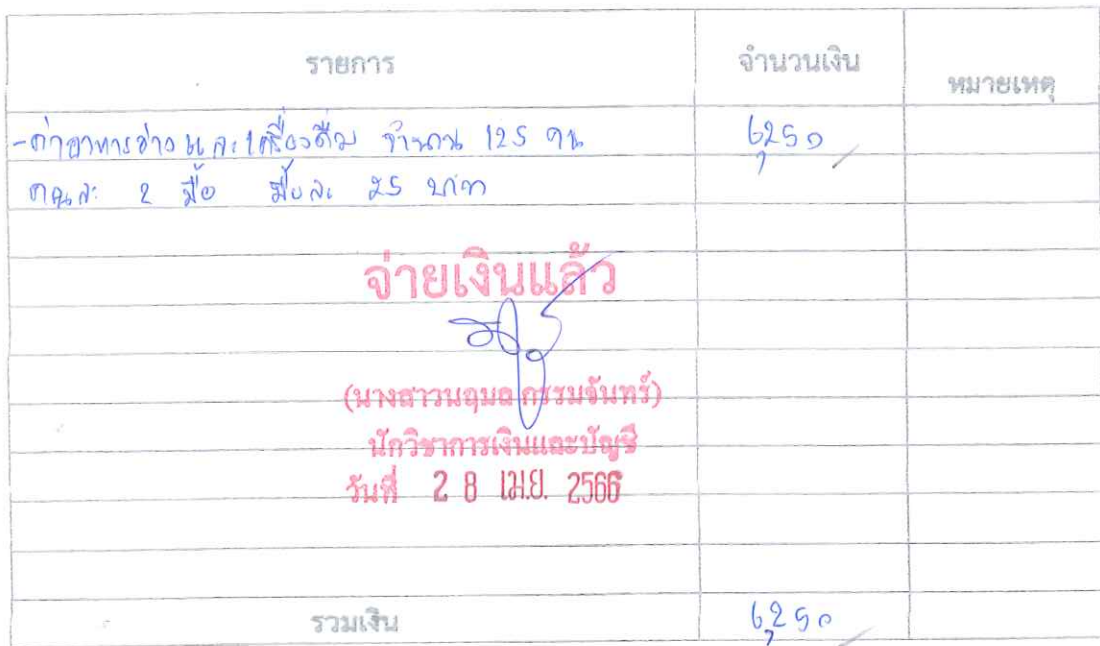 รายการ จำนวนเงิน หมายเหตุ
-ค่าอาหารว่างและเครื่องดื่ม จำนวน 125 คน 6,250
คนละ 2 มื้อ มื้อละ 25 บาท
จ่ายเงินแล้ว
(นางสาวนฤมล กรรมจันทร์)
นักวิชาการเงินและบัญชี
วันที่ 28 เม.ย. 2566
รวมเงิน 6,250